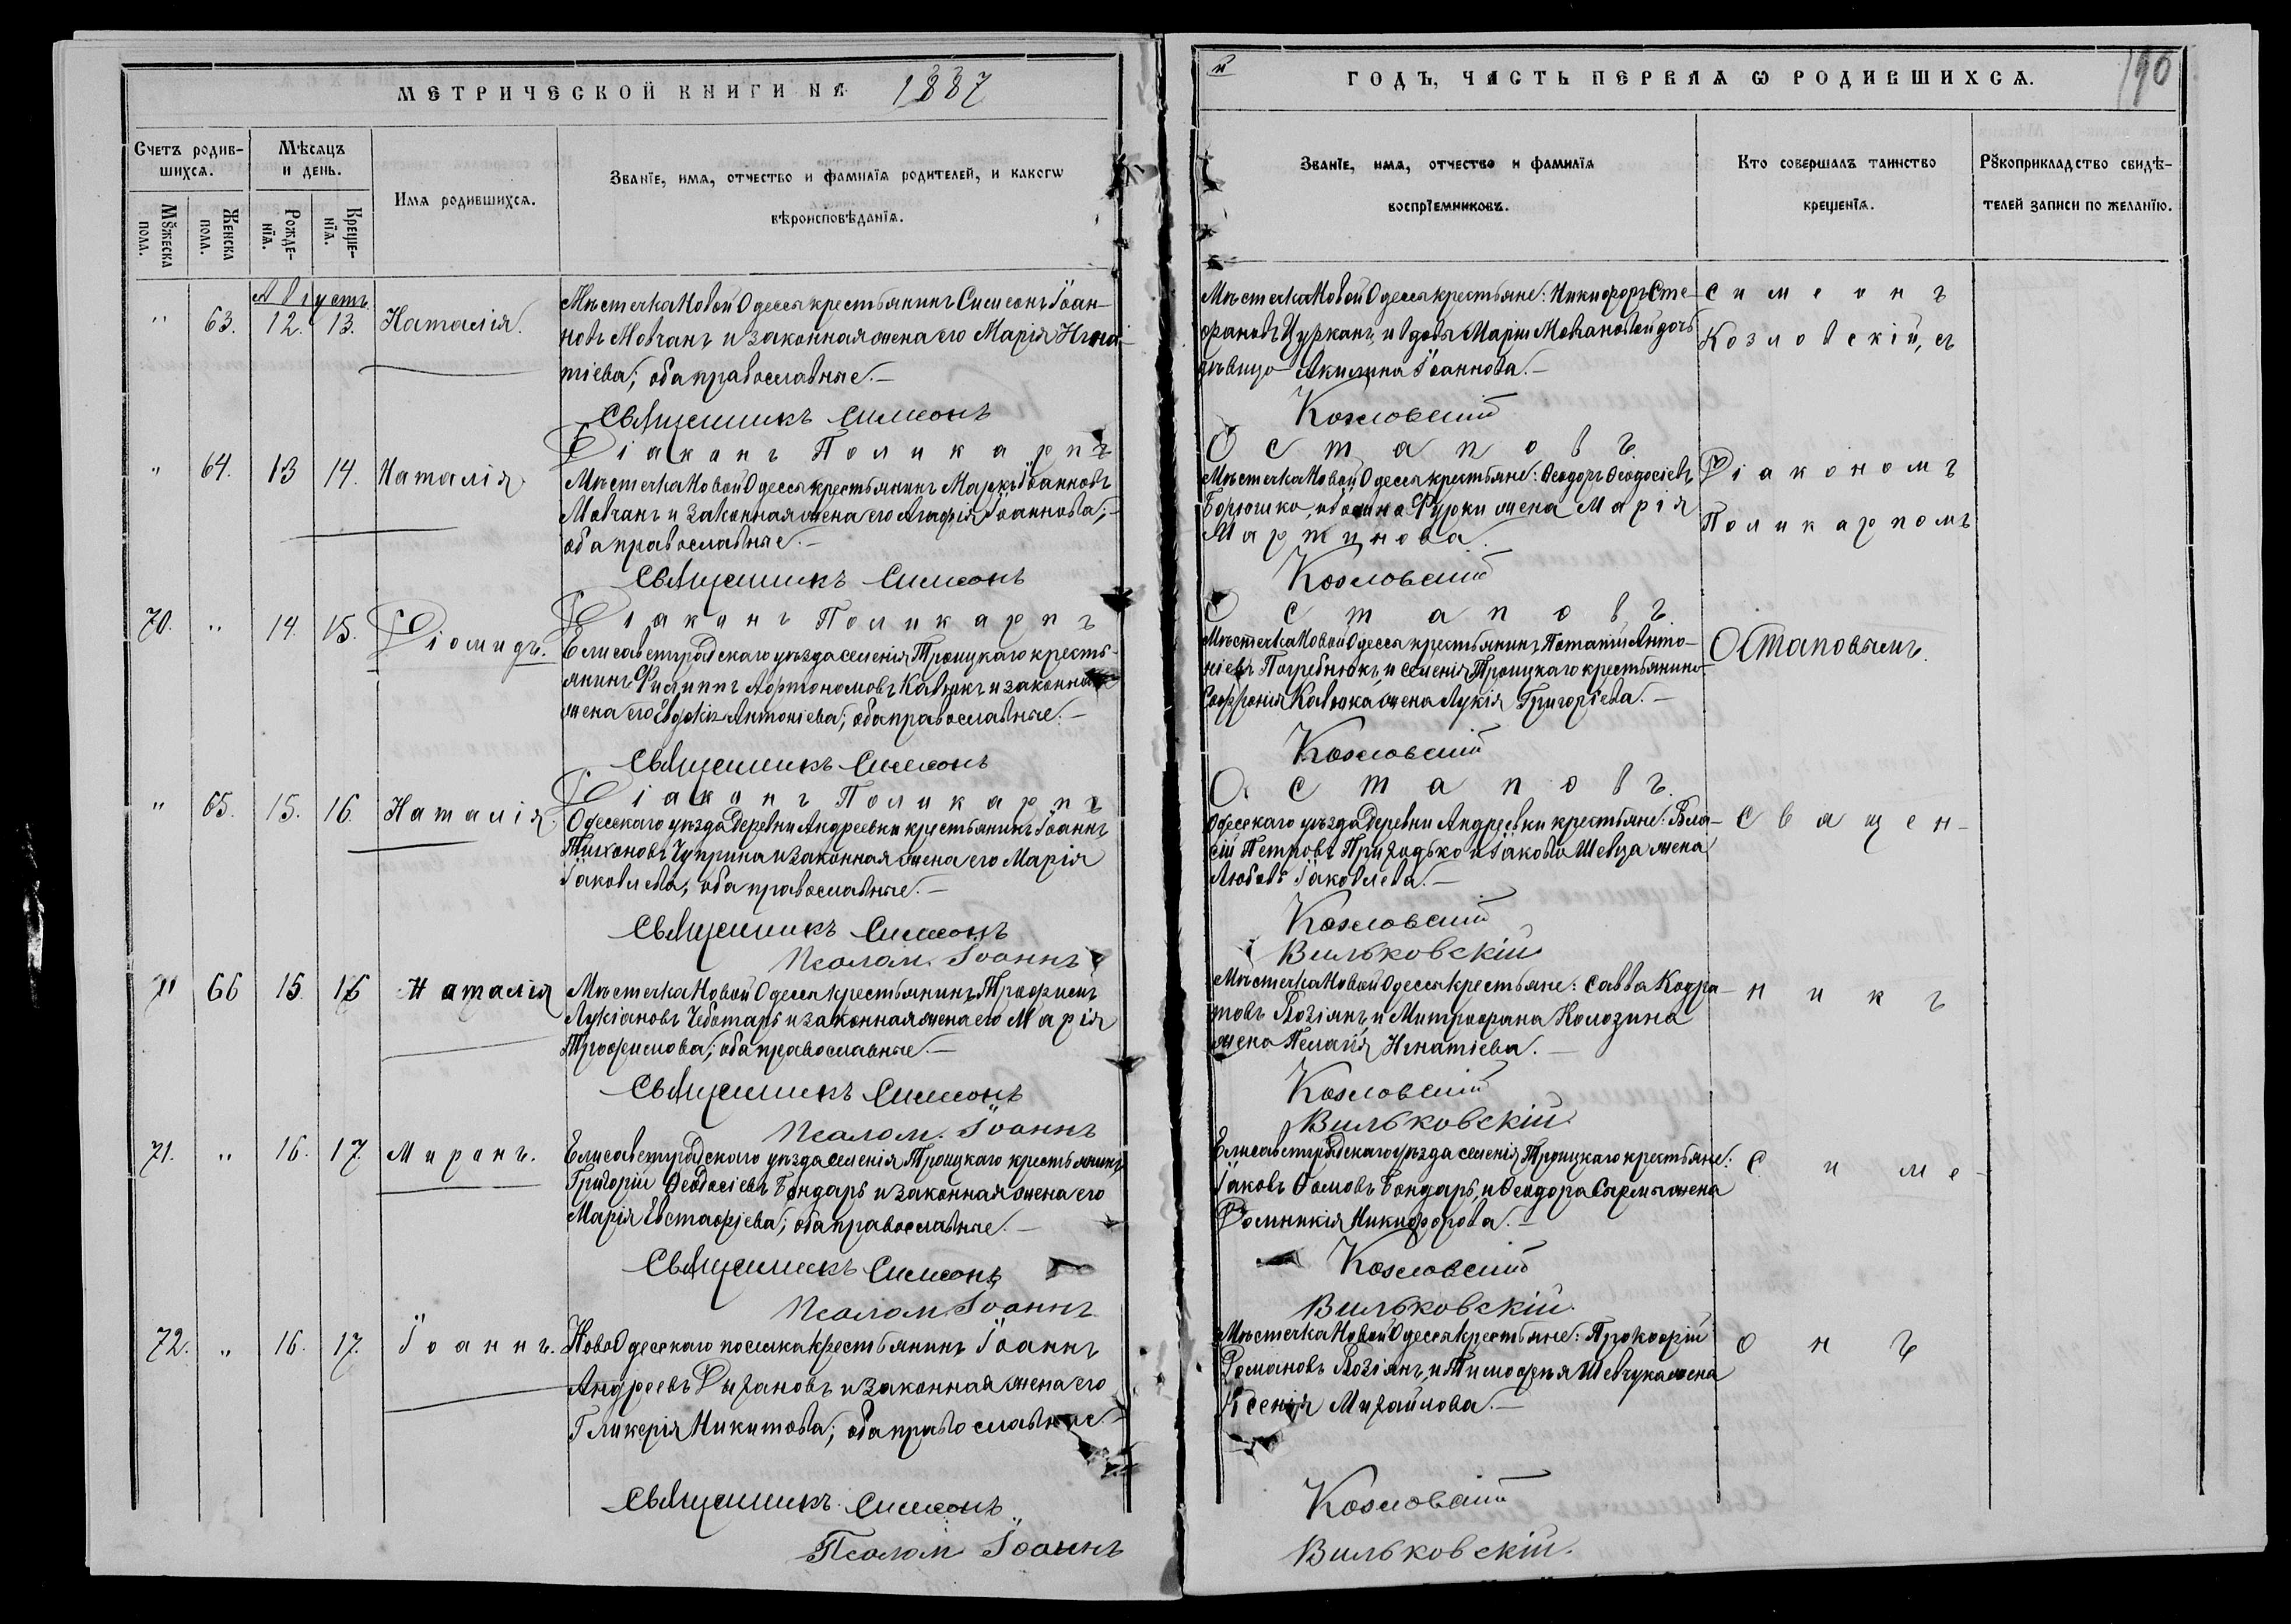 МЕТРИЧЕСКОЙ КНИГИ НА 1887
Счетъ родившихсѧ.
Мѣсяцъ и день.
Мꙋжеска пола.
Женска пола.
Рожде-
нїѧ.
Креще-
нїѧ.
Имѧ родившихсѧ.
Званїе, имѧ, отчество и фамилїѧ родителей, и какогѡ
вѣроисповѣданїѧ.
Августъ
" 63. 12. 13. Наталія.
Мѣстечка Новой Одессы крестьянинъ Симеонъ Іоан-
новъ Мовчанъ и законная жена его Марія Игна-
тіева; оба православные.—
Священникъ Симеонъ
Діаконъ Поликарпъ
" 64. 13 14. Наталія
Мѣстечка Новой Одессы крестьянинъ Маркъ Іоанновъ
Мовчанъ и законная жена его Агафія Іоаннова;
оба православные.—
Священникъ Симеонъ
Діаконъ Поликарпъ
70. " 14. 15. Діомидъ.
Елисаветградскаго уѣзда селенія Троицкаго кресть-
янинъ Филиппъ Афтономовъ Кавюкъ и законная
жена его Евдокія Антоніева; оба православные.—
Священникъ Симеонъ
Діаконъ Поликарпъ
" 65. 15. 16. Наталія
Одесскаго уѣзда деревни Андреевки крестьянинъ Іоаннъ
Тихоновъ Чуприна и законная жена его Марія
Іаковлева; оба православные.—
Священникъ Симеонъ
Псалом. Іоаннъ
" 66 15. 16 Наталія
Мѣстечка Новой Одессы крестьянинъ Трофимъ
Лукіановъ Чеботарь и законная жена его Марія
Трофимова; оба православные.—
Священникъ Симеонъ
Псалом. Іоаннъ
71. " 16. 17. Миронъ.
Елисаветградскаго уѣзда селенія Троицкаго крестьянинъ
Григорій Ѳеодосіевъ Бондарь и законная жена его
Марія Евстафіева; оба православные.—
Священникъ Симеонъ
Псалом. Іоаннъ
72. " 16. 17. Іоаннъ.
НовоОдесскаго поселка крестьянинъ Іоаннъ
Андреевъ Рыхановъ и законная жена его
Гликерія Никитова; оба православные
Священникъ Симеонъ
Псалом Іоаннъ
й ГОДЪ, ЧАСТЬ ПЕРВАѦ Ѡ РОДИВШИХСѦ. 190
Званїе, имѧ, отчество и фамилїѧ
воспрїемниковъ.
Кто совершалъ таинство
крещенїѧ.
Рꙋкоприкладство свидѣ-
телей записи по желанїю.
Мѣстечка Новой Одессы крестьяне: Никифоръ Сте-
фановъ Цурканъ, и вдовы Маріи Мовчановой дочь
дѣвица Акилина Іоаннова.—
Козловскій
Остаповъ.
Мѣстечка Новой Одессы крестьяне: Ѳеодоръ Ѳеодосіевъ
Борюшко, Фурки жена Марія
Мартинова.
Козловскій
Остаповъ.
Мѣстечка Новой Одессы крестьянинъ Потапій Анто-
ніевъ Погребнюкъ, и селенія Троицкаго крестьянина
Софронія Кавюка жена Лукія Григоріева.—
Козловскій
Остаповъ.
Одесскаго уѣзда деревни Андреевки крестьяне: Вла-
сій Петровъ Приходько и Іакова Шевца жена
Любовь Іаковлева.—
Козловскій
Вильковскій
Мѣстечка Новой Одессы крестьяне: Савва Кодра-
товъ Лозіянъ, и Митрофана Колозина
жена Пелагія Игнатіева.—
Козловскій
Вильковскій.
Елисаветградскаго уѣзда селенія Троицкаго крестьяне:
Іаковъ Ѳомовъ Бондарь, и Ѳеодора Сырмы жена
Домникія Никифорова.—
Козловскій
Вильковскій.
Мѣстечка Новой Одессы крестьяне: Прокофій
Романовъ Лозіянъ, и Тимофея Шевчука жена
Ксенія Михайлова.—
Козловскій
Вильковскій.
Симеонъ
Козловскій, съ
Діакономъ
Поликарпомъ
Остаповымъ.
Священ-
никъ
Симе-
онъ